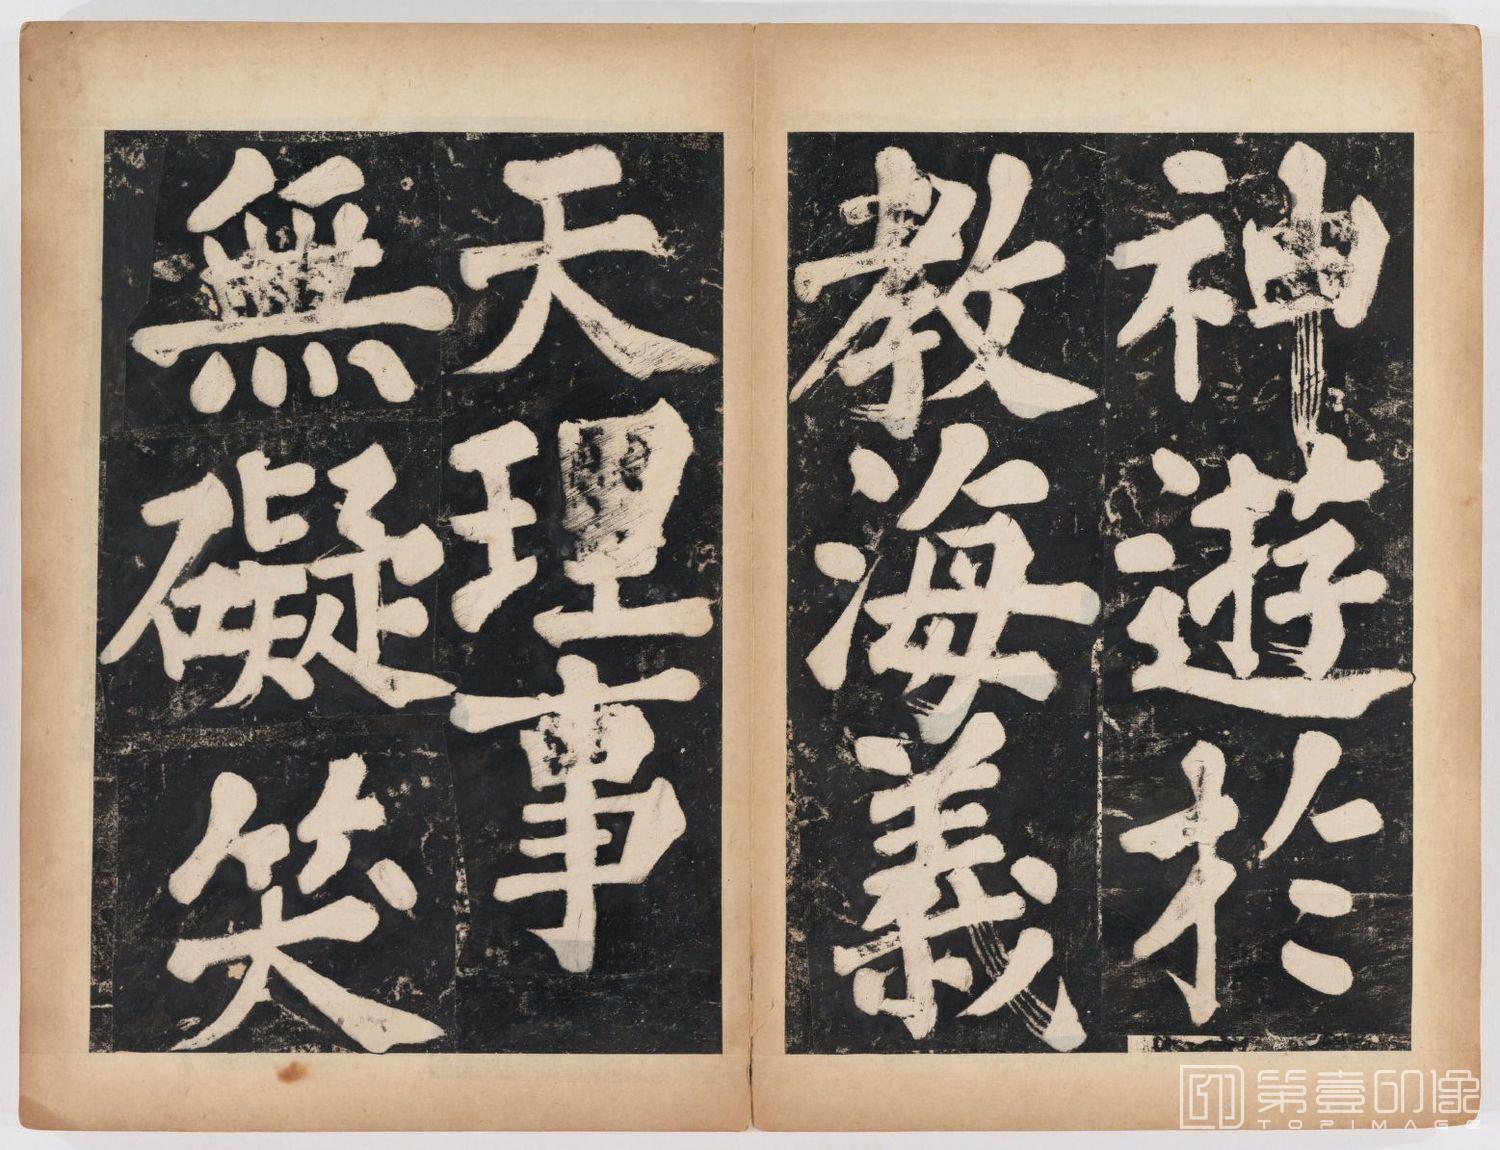 神遊於
教海義
天理事
無礙笑
第壹印像
TOPIMAGE